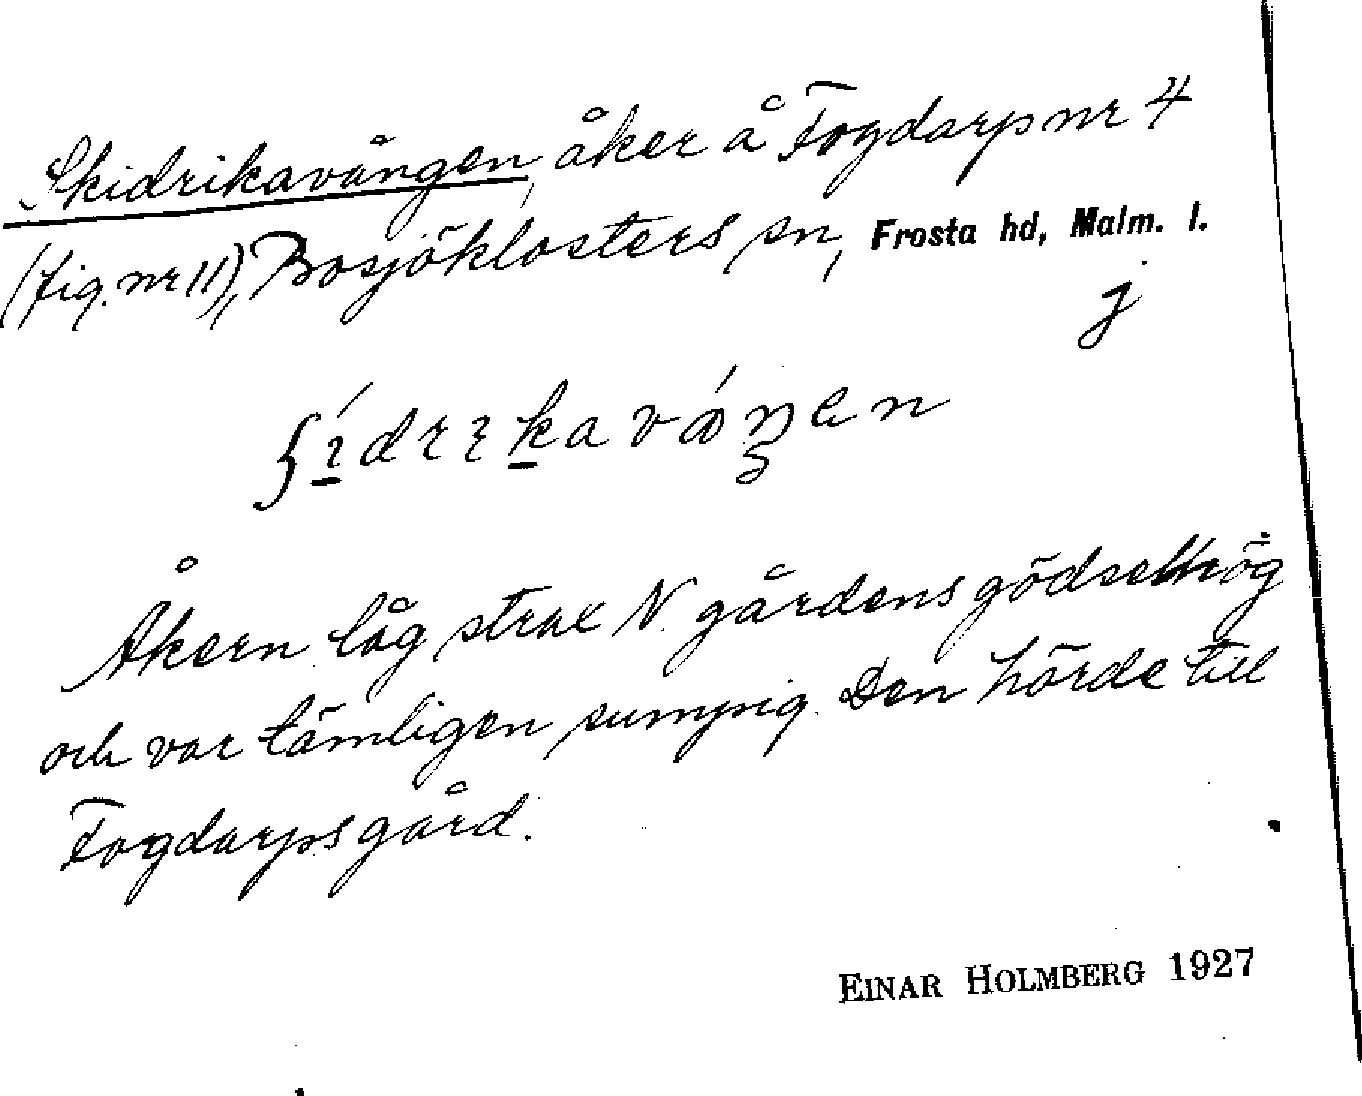 Skidrikavången, åker å Fogdarp nr 4
(fig. nr 11), Bosjöklosters sn, Frosta hd, Malm. l.
j
Åkern låg strax N. gårdens gödselhög
och var tämligen sumpig. Den hörde till
Fogdarps gård.
EINAR HOLMBERG 1927